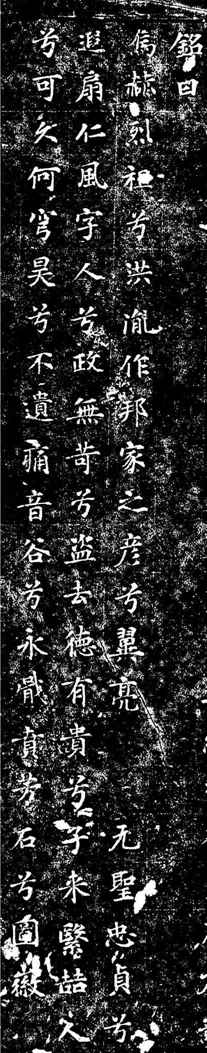 銘曰
赫烈祖兮洪胤作邦家之彦兮翼亮 元聖忠貞兮
遐扇仁風字人兮政無苛兮盜去德有貴兮子来繄喆人
兮可久何穹昊兮不遺痛音谷兮永賁芳石兮圖徽